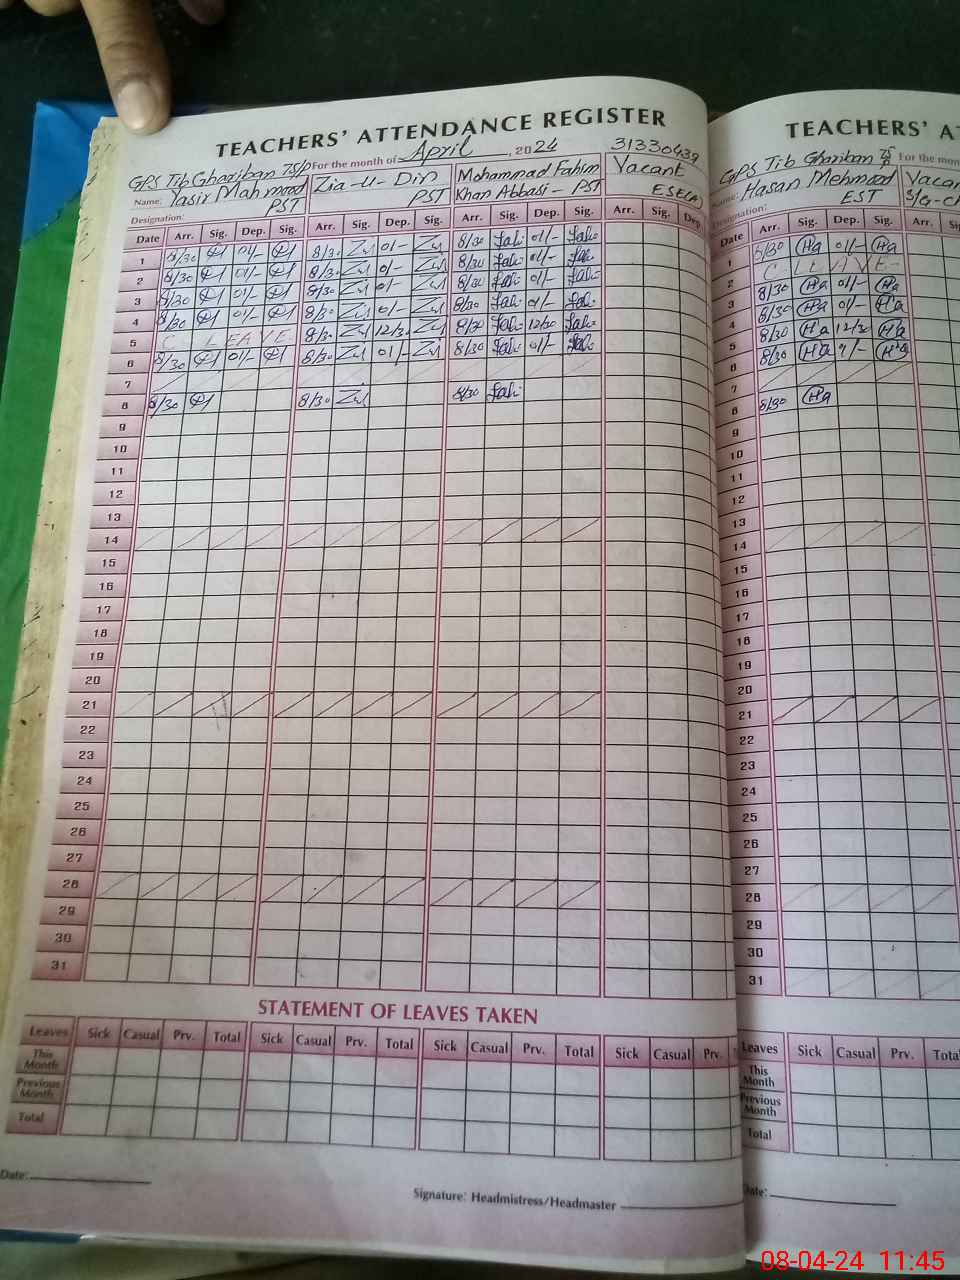 TEACHERS' ATTENDANCE REGISTER
GPS Tib Ghariban 75/P For the month of April, 2024 31330439
Name: Yasir Mahmood Zia-u-Din Mohammad Fahim Vacant
Designation: PST PST Khan Abbasi - PST ESE(A)
Date Arr. Sig. Dep. Sig. Arr. Sig. Dep. Sig. Arr. Sig. Dep. Sig. Arr. Sig. Dep.
1 8/30 01/- 8/30 Zu 01- Zu 8/30 Fahi 01/- Fahi
2 8/30 01/- 8/30 Zu 0/- Zu 8/30 Fahi 01/- Fahi
3 8/30 01/- 8/30 Zu 01- Zu 8/30 Fahi 01/- Fahi
4 8/30 01/- 8/30 Zu 0/- Zu 8/30 Fahi 01/- Fahi
5 C. LEAVE 8/30 Zu 12/30 Zu 8/30 Fahi 12/30 Fahi
6 8/30 01/- 8/30 Zu 01/- Zu 8/30 Fahi 01/- Fahi
7
8 8/30 8/30 Zu 8/30 Fahi
9
10
11
12
13
14
15
16
17
18
19
20
21
22
23
24
25
26
27
28
29
30
31
STATEMENT OF LEAVES TAKEN
Leaves Sick Casual Prv. Total Sick Casual Prv. Total Sick Casual Prv. Total Sick Casual Prv.
This Month
Previous Month
Total
Date:
Signature: Headmistress/Headmaster
TEACHERS' A
GPS Tib Ghariban 75/P For the mon
Name: Hasan Mehmood Vacan
Designation: EST
Date Arr. Sig. Dep. Sig. Arr. Sig.
1 8/30 Ha 01/- Ha
2 C LEAVE
3 8/30 Ha 01/- Ha
4 8/30 Ha 01/- Ha
5 8/30 Ha 12/30 Ha
6 8/30 Ha 1/- Ha
7
8 8/30 Ha
9
10
11
12
13
14
15
16
17
18
19
20
21
22
23
24
25
26
27
28
29
30
31
Leaves Sick Casual Prv. Total
This Month
Previous Month
Total
Date:
08-04-24 11:45